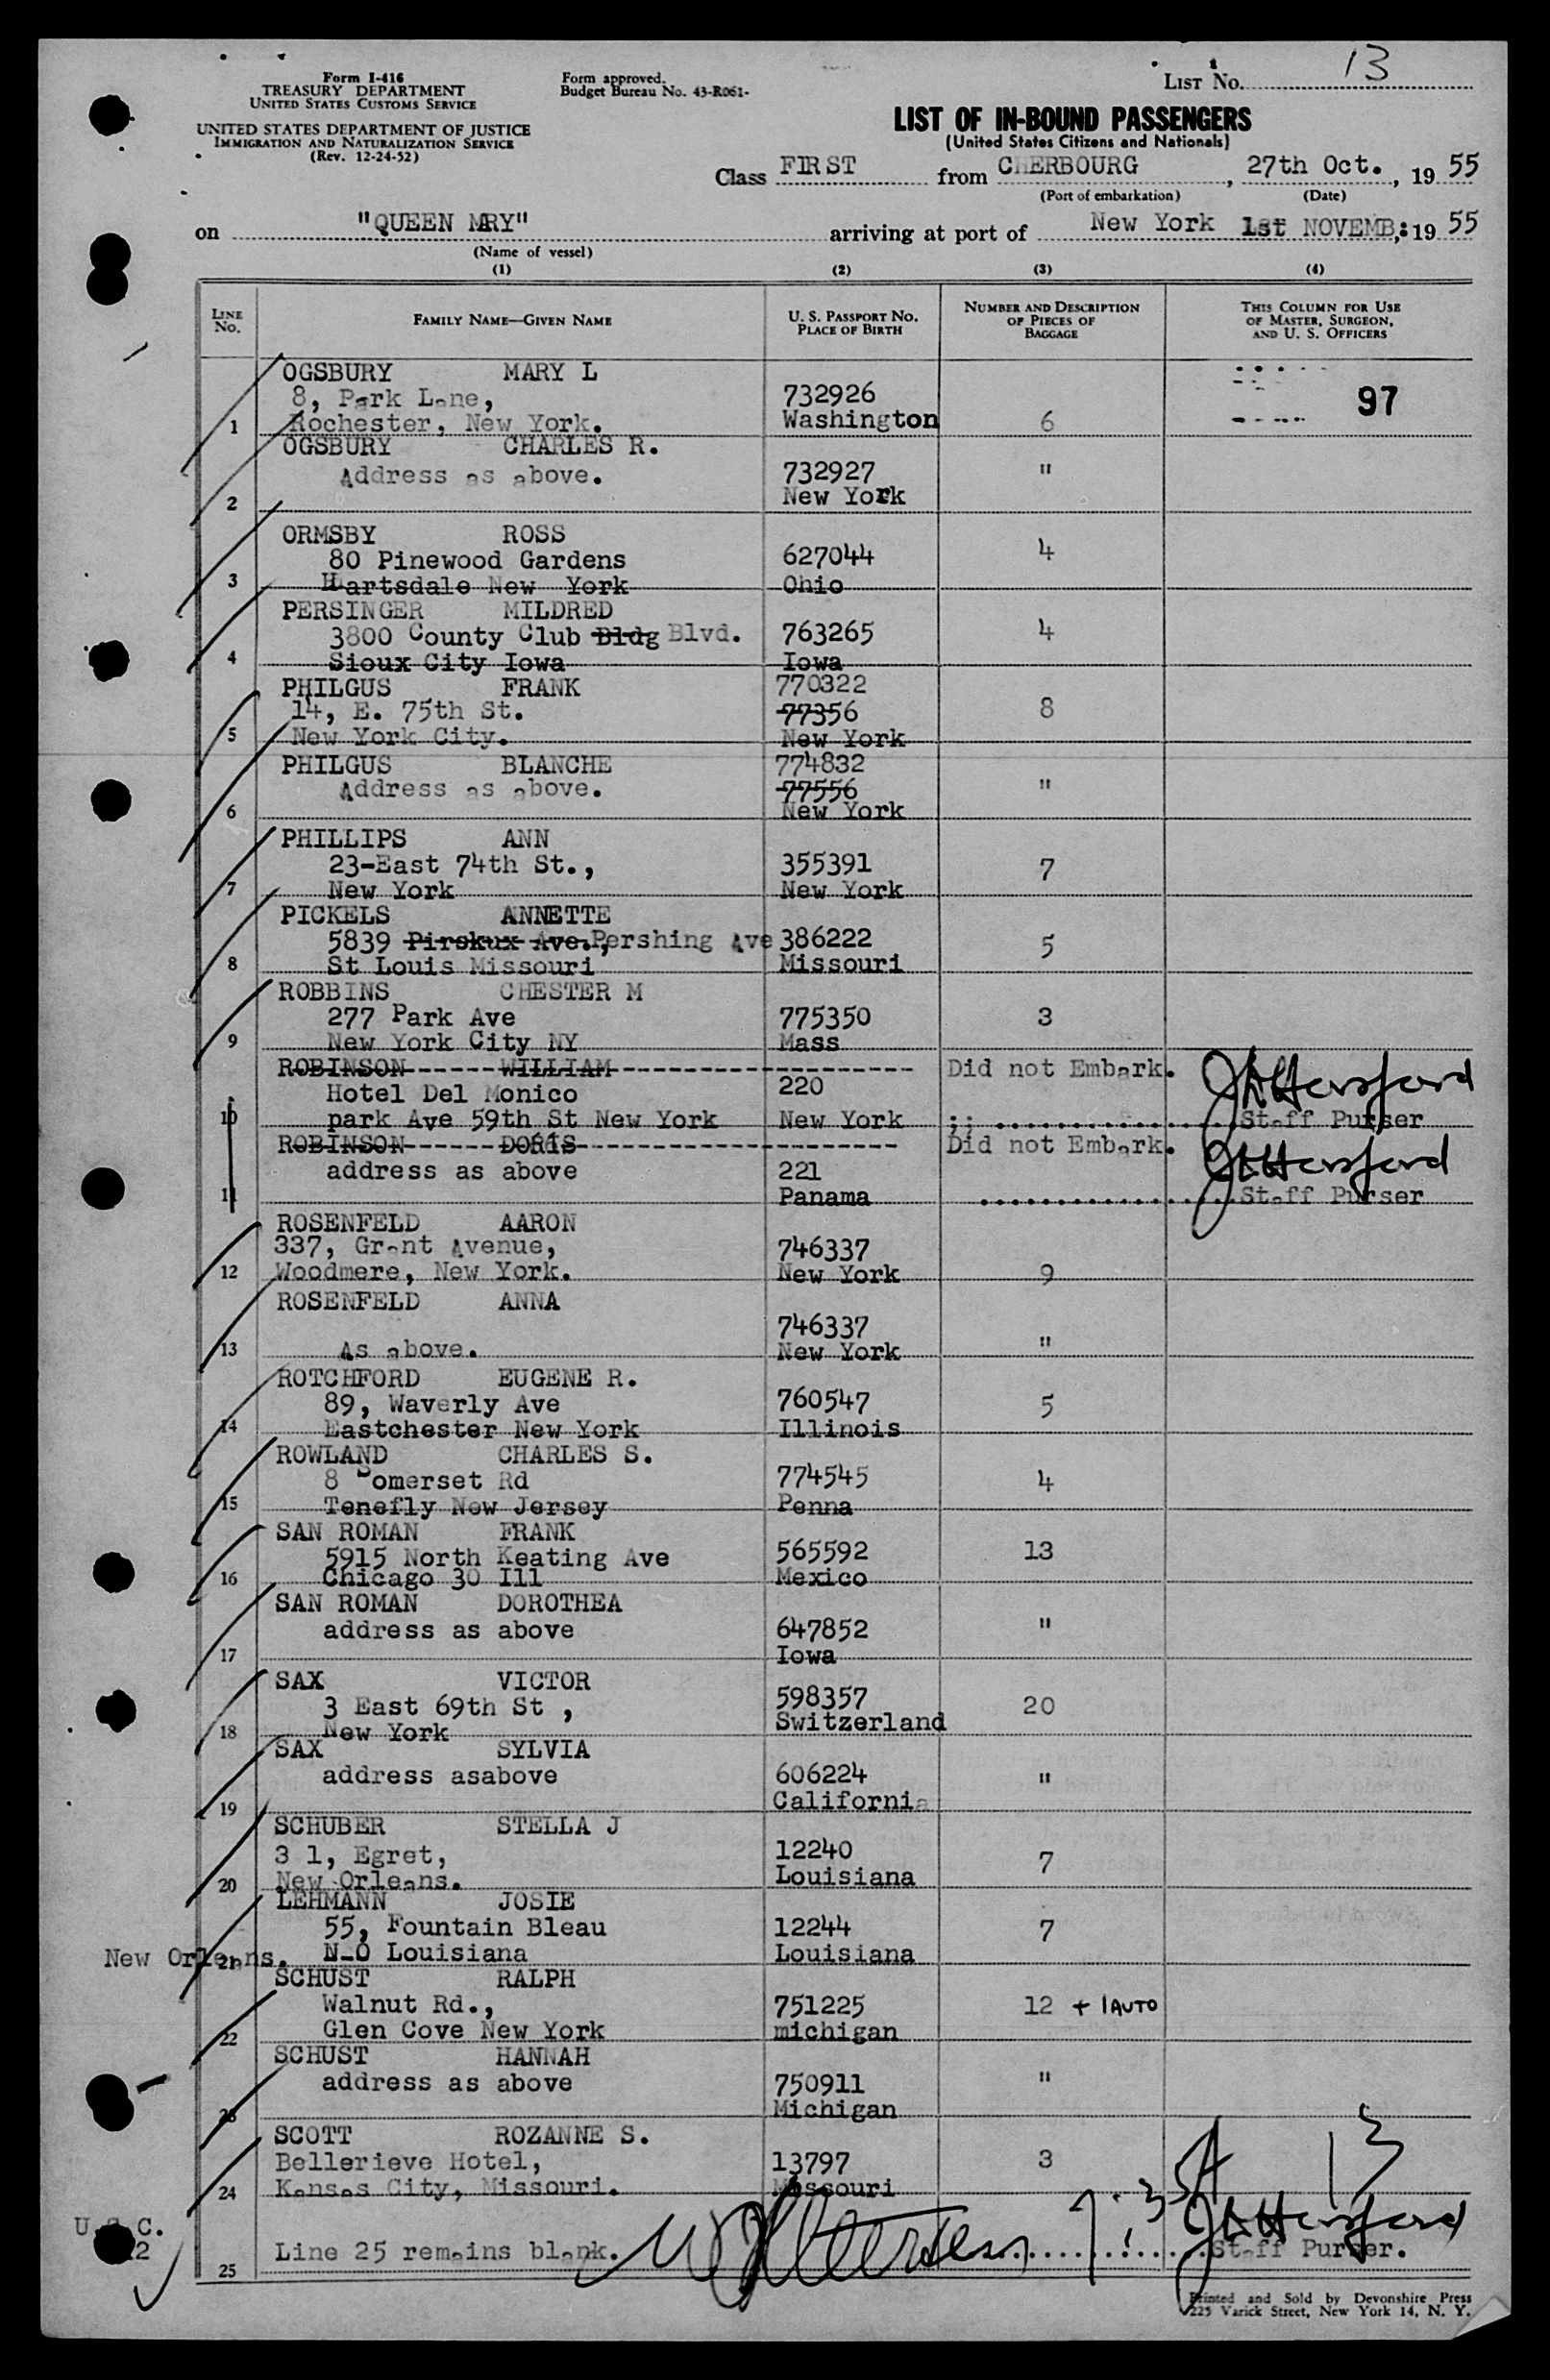 Form I-416
TREASURY DEPARTMENT
UNITED STATES CUSTOMS SERVICE
UNITED STATES DEPARTMENT OF JUSTICE
IMMIGRATION AND NATURALIZATION SERVICE
(Rev. 12-24-52)
Form approved.
Budget Bureau No. 43-R061-
LIST NO. 13
LIST OF IN-BOUND PASSENGERS
(United States Citizens and Nationals)
Class FIRST from CHERBOURG, 27th Oct., 19 55
(Port of embarkation) (Date)
on "QUEEN MARY" arriving at port of New York 1st NOVEMB,: 19 55
(Name of vessel)
(1) (2) (3) (4)
LINE No. FAMILY NAME—GIVEN NAME U. S. PASSPORT NO. PLACE OF BIRTH NUMBER AND DESCRIPTION OF PIECES OF BAGGAGE THIS COLUMN FOR USE OF MASTER, SURGEON, AND U. S. OFFICERS
OGSBURY MARY L
8, Park Lane, 732926 97
1 Rochester, New York. Washington 6
OGSBURY CHARLES R.
Address as above. 732927 "
2 New York
ORMSBY ROSS
80 Pinewood Gardens 627044 4
3 Hartsdale New York Ohio
PERSINGER MILDRED
3800 County Club Bldg Blvd. 763265 4
4 Sioux City Iowa Iowa
PHILGUS FRANK 770322
14, E. 75th St. 77356 8
5 New York City. New York
PHILGUS BLANCHE 774832
Address as above. 77556 "
6 New York
PHILLIPS ANN
23-East 74th St., 355391 7
7 New York New York
PICKELS ANNETTE
5839 Pirskux Ave., Pershing Ave 386222 5
8 St Louis Missouri Missouri
ROBBINS CHESTER M
277 Park Ave 775350 3
9 New York City NY Mass
ROBINSON WILLIAM Did not Embark.
Hotel Del Monico 220
10 park Ave 59th St New York New York ;; Staff Purser
ROBINSON DORIS Did not Embark.
address as above 221
11 Panama Staff Purser
ROSENFELD AARON
337, Grant Avenue, 746337
12 Woodmere, New York. New York 9
ROSENFELD ANNA
746337
13 As above. New York "
ROTCHFORD EUGENE R.
89, Waverly Ave 760547 5
14 Eastchester New York Illinois
ROWLAND CHARLES S.
8 Somerset Rd 774545 4
15 Tenefly New Jersey Penna
SAN ROMAN FRANK
5915 North Keating Ave 565592 13
16 Chicago 30 Ill Mexico
SAN ROMAN DOROTHEA
address as above 647852 "
17 Iowa
SAX VICTOR
3 East 69th St , 598357 20
18 New York Switzerland
SAX SYLVIA
address asabove 606224 "
19 California
SCHUBER STELLA J
3 1, Egret, 12240 7
20 New Orleans. Louisiana
LEHMANN JOSIE
55, Fountain Bleau 12244 7
New Orleans. 21 N-O Louisiana Louisiana
SCHUST RALPH
Walnut Rd., 751225 12 + 1 AUTO
22 Glen Cove New York michigan
SCHUST HANNAH
address as above 750911 "
23 Michigan
SCOTT ROZANNE S.
Bellerieve Hotel, 13797 3 13
24 Kansas City, Missouri. Missouri
U.S.C.
22
25 Line 25 remains blank. Staff Purser.
Printed and Sold by Devonshire Press
225 Varick Street, New York 14, N. Y.